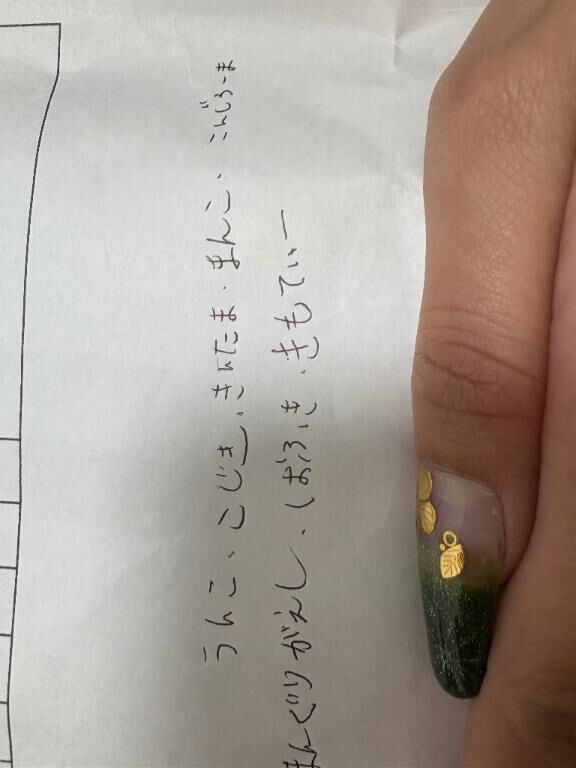 うんこ、こじき、きんたま、まんこ、こんじろーま
まんぐりがえし、しおふき、きもてぃー